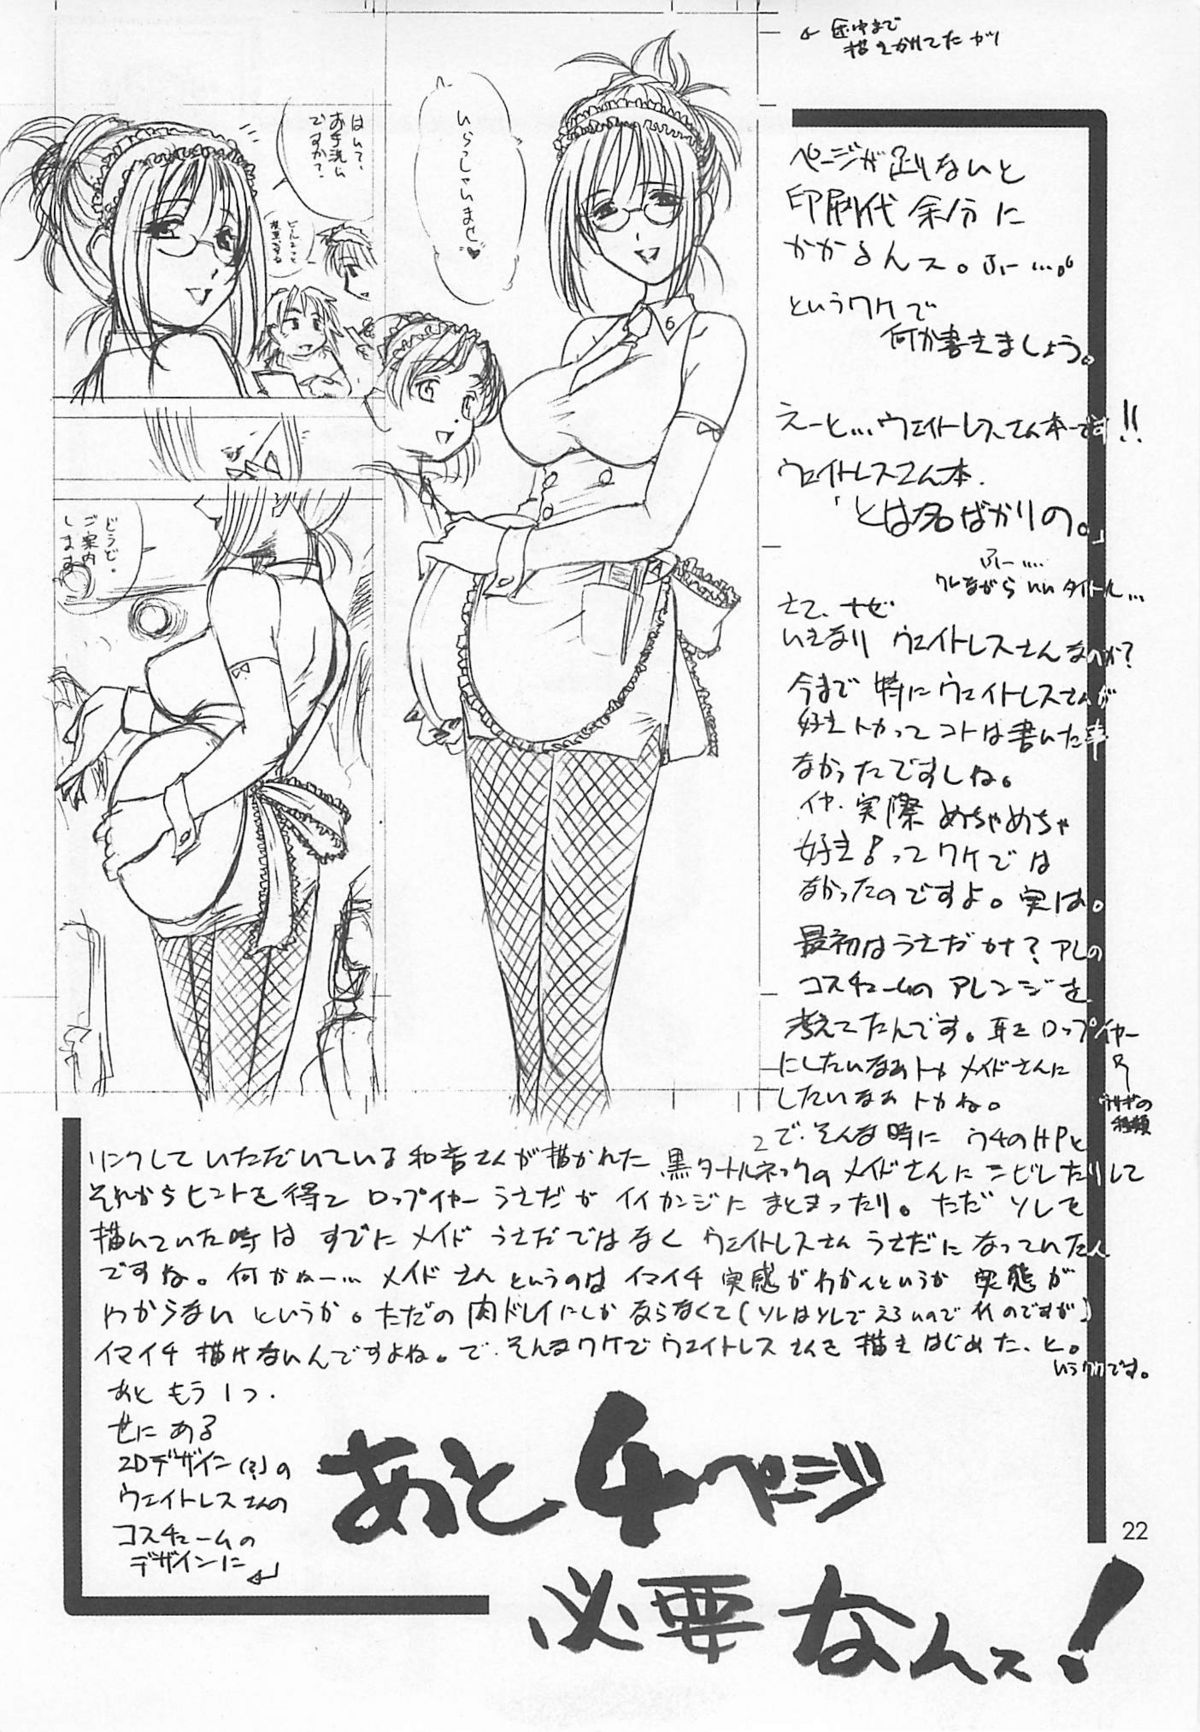 途中まで
描きかけてたヤツ
いらっしゃいませ♥
はいて、
お手洗い
ですか?
どうぞ。
ご案内
します
6
ページが足りないと
印刷代余分に
かかるんス。ふー…。
というワケで
何か書きましょう。
えーと…ウェイトレスさん本です!!
ウェイトレスさん本、
「とは名ばかりの。」
ふー……
ワレながらいいタイトル…
さて、なぜ
いきなりウェイトレスさんなのか?
今まで特にウェイトレスさんが
好きトカってコトは書いた事
なかったですしね。
イヤ、実際めちゃめちゃ
好き!ってワケでは
なかったのですよ。実は。
最初はうさだかな?アレの
コスチュームのアレンジを
考えてたんです。耳をロップイヤー
にしたいなぁトカメイドさんに
したいなぁトカね。
ウサギの
種類
で、そんな時にウチのHPと
リンクしていただいている和音さんが描かれた黒タートルネックのメイドさんにシビレたりして
それからヒントを得てロップイヤーうさだがイイカンジにまとまったり。ただソレを
描いていた時はすでにメイドうさだではなくウェイトレスさんうさだになっていたん
ですね。何かねー…メイドさんというのはイマイチ実感がわかんというか実態が
わからないというか。ただの肉ドレイにしかならなくて(ソレはソレでえろいのでイイのですが)
イマイチ描けないんですよね。で、そんなワケでウェイトレスさんを描きはじめた、と。
いうワケです。
あともう1つ、
世にある
2Dデザイン(?)の
ウェイトレスさんの
コスチュームの
デザインに
あと4ページ
必要なんス!
22